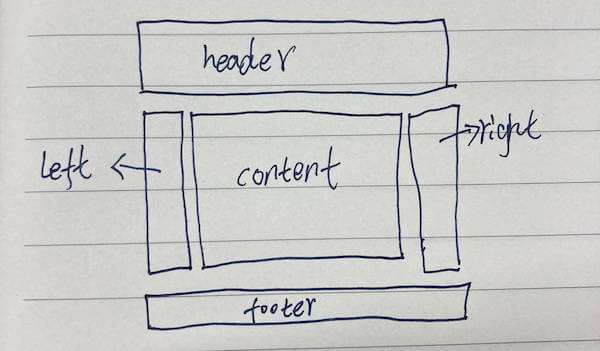 header
left
content
right
footer